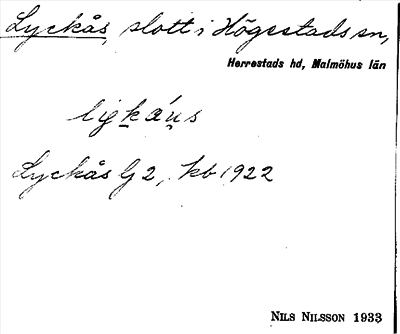 Lyckås, slott i Högestads sn,
Herrestads hd, Malmöhus län
ligkáus
Lyckås G 2, kb 1922
NILS NILSSON 1933